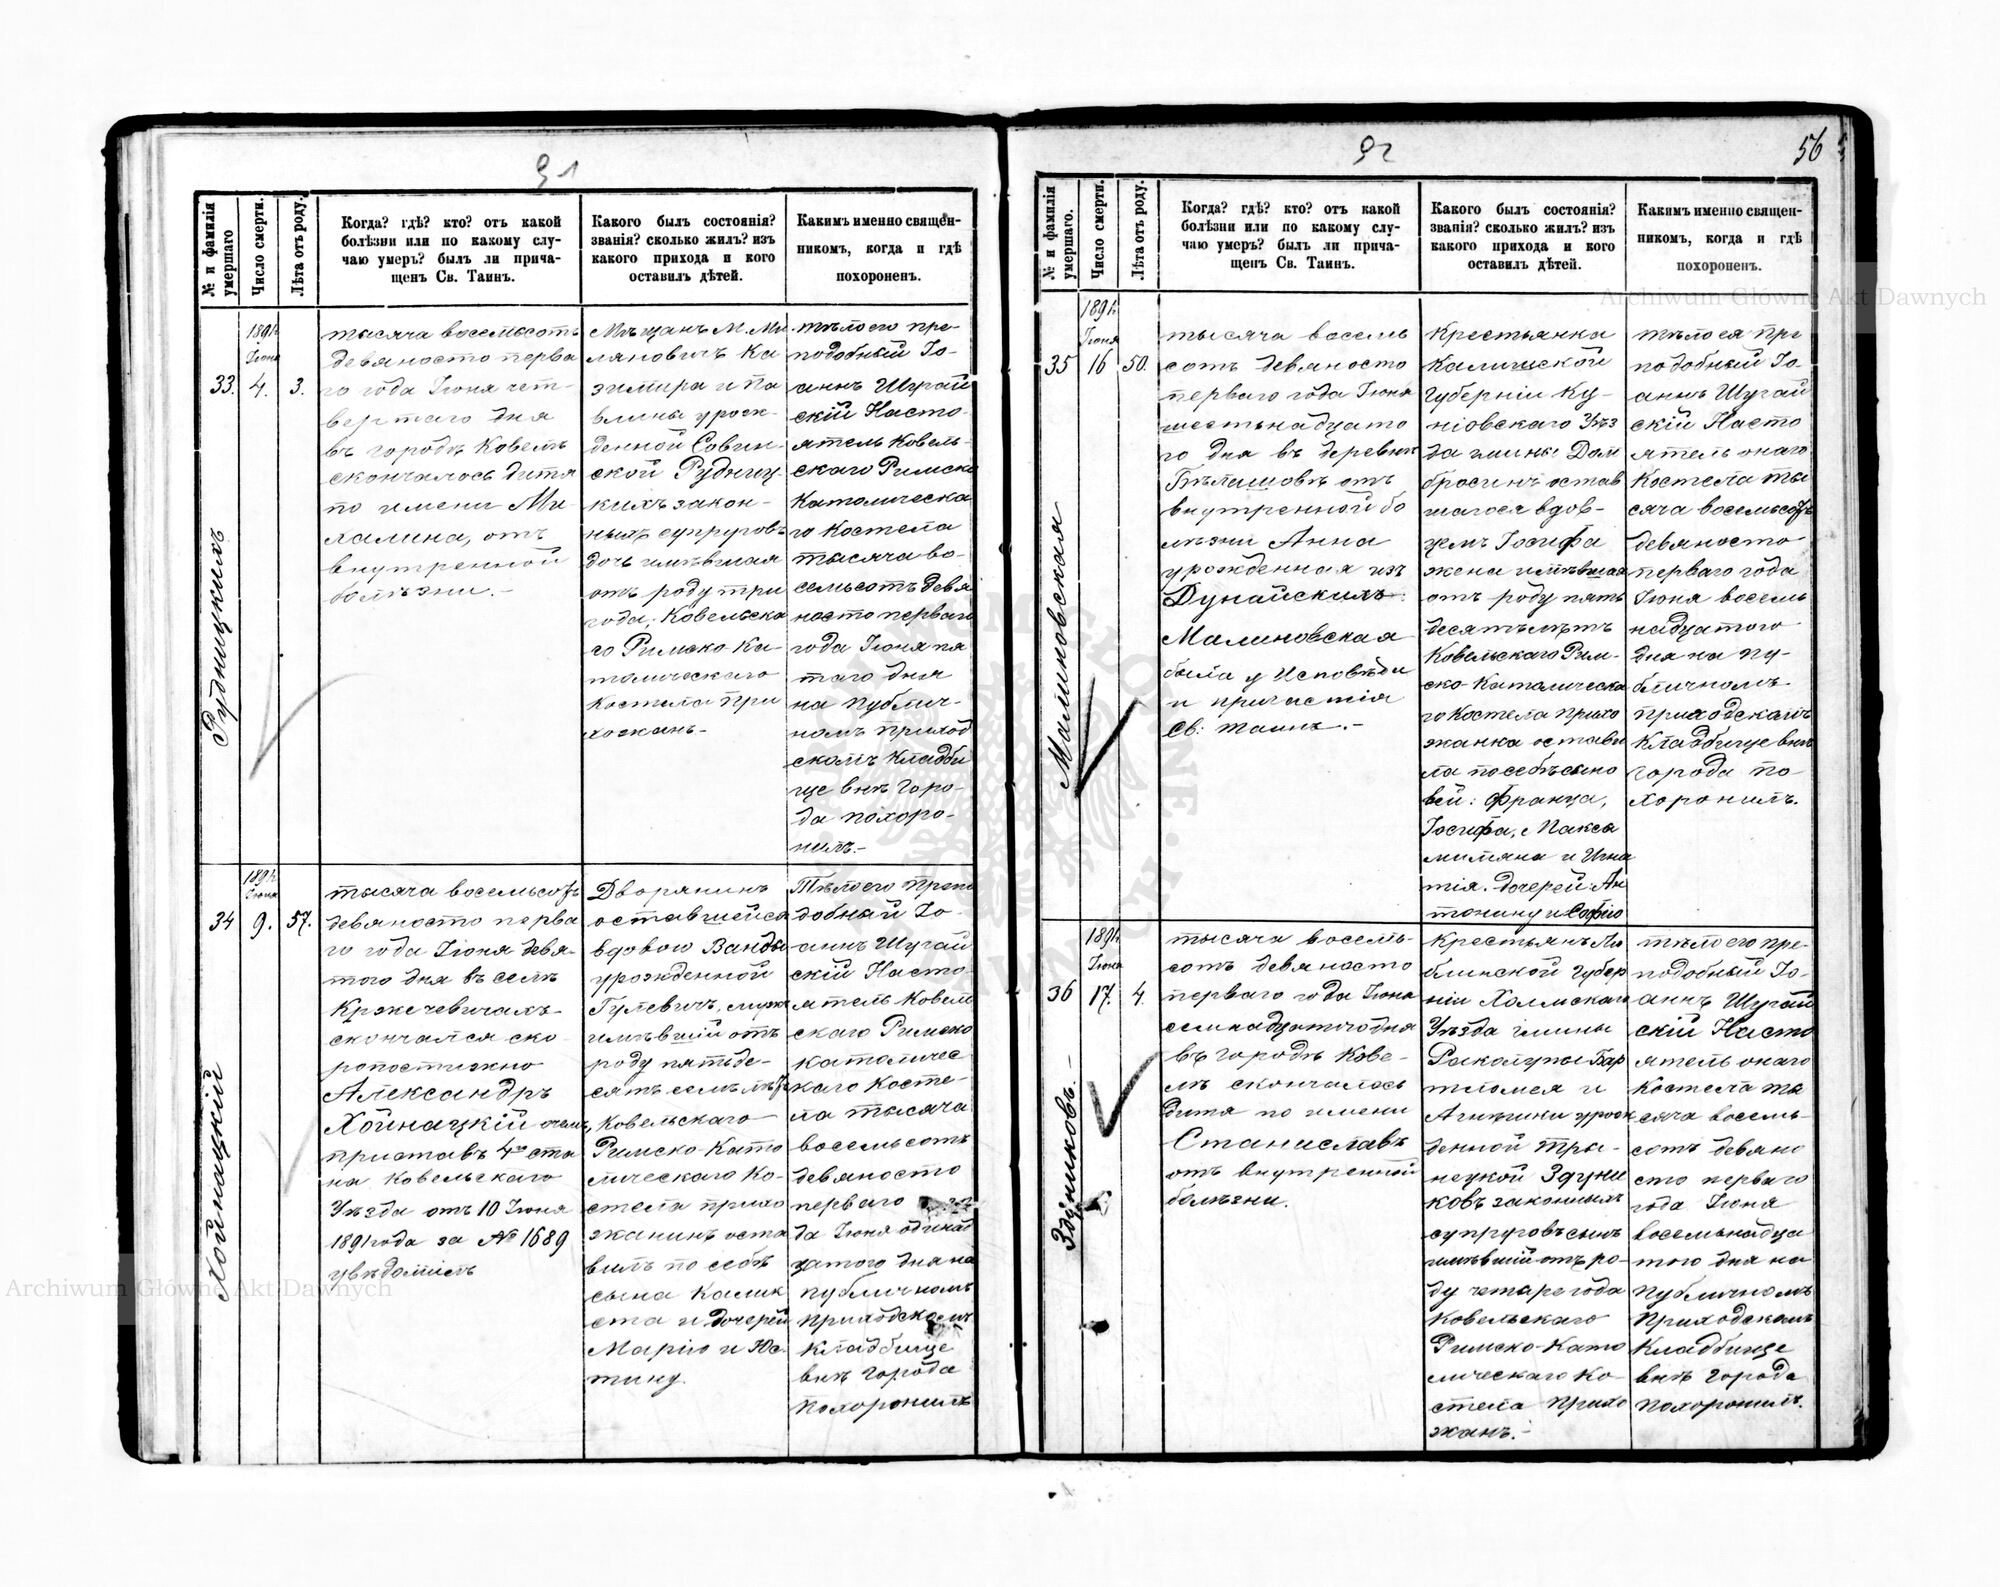 91
№ и фамилія умершаго
Число смерти.
Лѣта отъ роду.
Когда? гдѣ? кто? отъ какой
болѣзни или по какому слу-
чаю умеръ? былъ ли прича-
щенъ Св. Таинъ.
Какого былъ состоянія?
званія? сколько жилъ? изъ
какого прихода и кого
оставилъ дѣтей.
Какимъ именно священ-
никомъ, когда и гдѣ
похороненъ.
33.
Рудницкихъ
1891 г.
Іюня
4.
3.
тысяча восемьсотъ
девяносто перва
го года Іюня чет-
вертаго дня
въ городѣ Ковелѣ
скончалось дитя
по имени Ми-
халина, отъ
внутренной
болѣзни.-
Мѣщанъ М. Ми-
ляновичъ Ка
зимира и Па
влины урож-
денной Совин-
ской Рудниц-
кихъ закон-
ныхъ супруговъ
дочь имѣвшая
отъ роду три
года, Ковельска
го Римско Ка-
толическаго
Костела при
хожанъ-
тѣло его пре-
подобный Іо-
аннъ Шугай
скій Насто-
ятель Ковель-
скаго Римско
Католическа
го Костела
тысяча во-
семьсотъ девя
носто перваго
года Іюня пя
таго дня
на публич-
номъ приход
скомъ кладби
ще внѣ горо-
да похоро-
нилъ.-
34
Хойнацкій
1891 г.
Іюня
9.
57.
тысяча восемьсотъ
девяносто перва
го года Іюня девя-
того дня въ селѣ
Кржечевичахъ
скончался ско-
ропостижно
Александръ
Хойнацкій о чемъ,
приставъ 4го ста
на Ковельскаго
Уѣзда отъ 10 Іюня
1891 года за № 1689
увѣдомилъ
Дворянинъ
оставшейся
вдовою Ванды
урожденной
Гулевичъ, мужъ
имѣвшій отъ
роду пятьде-
сятъ семь лѣтъ
Ковельскаго
Римско-Като
лическаго Ко-
стела прихо
жанинъ оста
вилъ по себѣ
сына Каликс
ста и дочерей
Марію и Юс-
тину.
Тѣло его препо
добный Іо-
аннъ Шугай
скій Насто-
ятель Ковель
скаго Римско
католичес
каго Косте-
ла тысяча
восемьсотъ
девяносто
перваго
да Іюня одинад
цатого дня на
публичномъ
приходскомъ
кладбище
внѣ города
похоронилъ
92
56
№ и фамилія умершаго.
Число смерти.
Лѣта отъ роду.
Когда? гдѣ? кто? отъ какой
болѣзни или по какому слу-
чаю умеръ? былъ ли прича-
щенъ Св. Таинъ.
Какого былъ состоянія?
званія? сколько жилъ? изъ
какого прихода и кого
оставилъ дѣтей.
Какимъ именно священ-
никомъ, когда и гдѣ
похороненъ.
35
Малиновская
1891 г.
Іюня
16
50.
тысяча восемь
сотъ девяносто
перваго года Іюня
шестьнадцато
го дня въ деревнѣ
Бѣлашовѣ отъ
внутренной бо
лѣзни Анна
урожденная изъ
Дунайскихъ
Малиновская
была у Исповѣди
и причастія
Св: таинъ.-
Крестьянка
Калишской
Губерніи Ку-
ніовскаго Уѣз
да гмины Дом
бросинъ остав
шагося вдов-
цемъ Іосифа
жена имѣвшая
отъ роду пять
десятъ лѣтъ
Ковельскаго Рим-
ско-Католическа
го Костела прихо
жанка остави
ла по себѣ сыно
вей: Франца,
Іосифа, Макси
миліана и Игна
тія. дочерей Ан
тонину и Софію
тѣло ея пре
подобный Іо-
аннъ Шугай
скій Насто
ятель онаго
Костела ты
сяча восемьсотъ
девяносто
перваго года
Іюня восемь
надцатого
дня на пу-
бличномъ
приходскомъ
кладбище внѣ
города по-
хоронилъ.
36
Здуниковъ.-
1891 г.
Іюня
17.
4.
тысяча восемь-
сотъ девяносто
перваго года Іюня
семнадцатого дня
въ городѣ Кове-
лѣ скончалось
дитя по имени
Станиславъ
отъ внутренной
болѣзни.
Крестьянъ Лю
блинской Губер
ніи Холмскаго
Уѣзда гмины
Раколупы Бар
тломея и
Агнѣшки урож
денной Тры-
нецкой Здуни
ковъ законныхъ
супруговъ сынъ
имѣвшій отъ ро-
ду четаре года
Ковельскаго
Римско-Като
лическаго Ко-
стела прихо
жанъ.-
тѣло его пре-
подобный Іо-
аннъ Шугай
скій Насто
ятель онаго
Костела ты
сяча восемь-
сотъ девяно
сто перваго
года Іюня
восемьнадца
того дня на
публичномъ
Приходскомъ
Кладбище
внѣ города
похоронилъ.
Archiwum Główne Akt Dawnych
Archiwum Główne Akt Dawnych